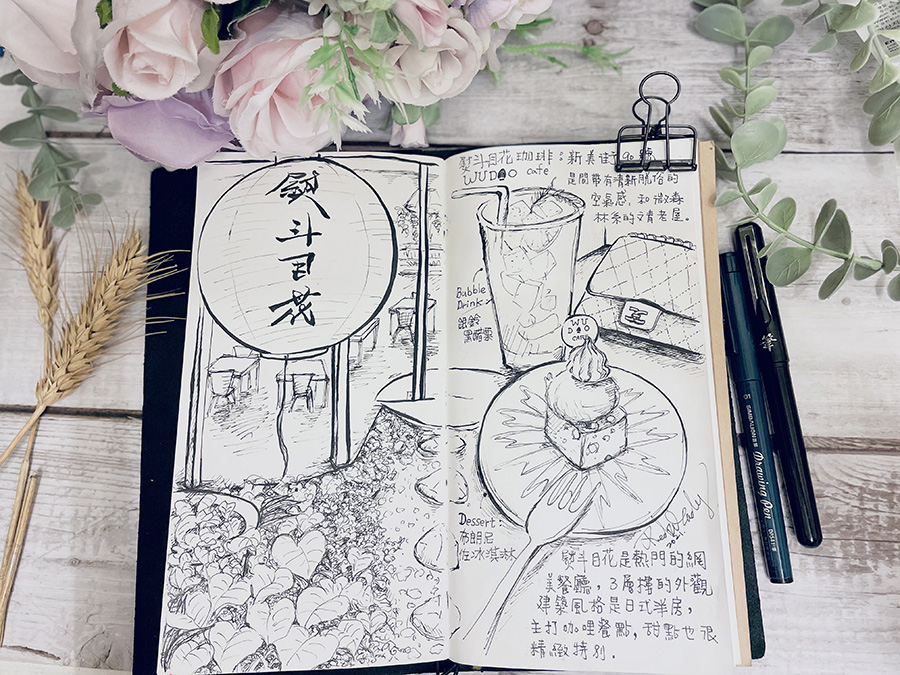 熨
斗
目
花
熨斗目花珈琲:新美街90號
WUDAO cafe
是間帶有清新脫俗的
空氣感、和微森
林系的文青老屋。
Bubble
Drink:
銀鈴
黑醋栗
WU
DAO
CAFE
Dessert:
布朗尼
佐冰淇淋
熨斗目花是熱門的網
美餐廳,3層摟的外觀
建築風格是日式洋房,
主打咖哩餐點,甜點也很
精緻特別.
筆
01
Drawing Pen